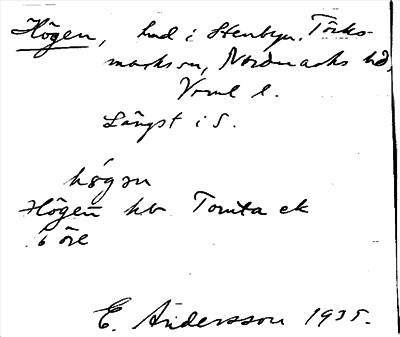 Högen, hmd i Stenbyn, Törks-
marks sn, Nordmarks hd,
Vrml l.
Längst i S.
högen
Högen hb Tomta ek
6 öre
E. Andersson 1935.